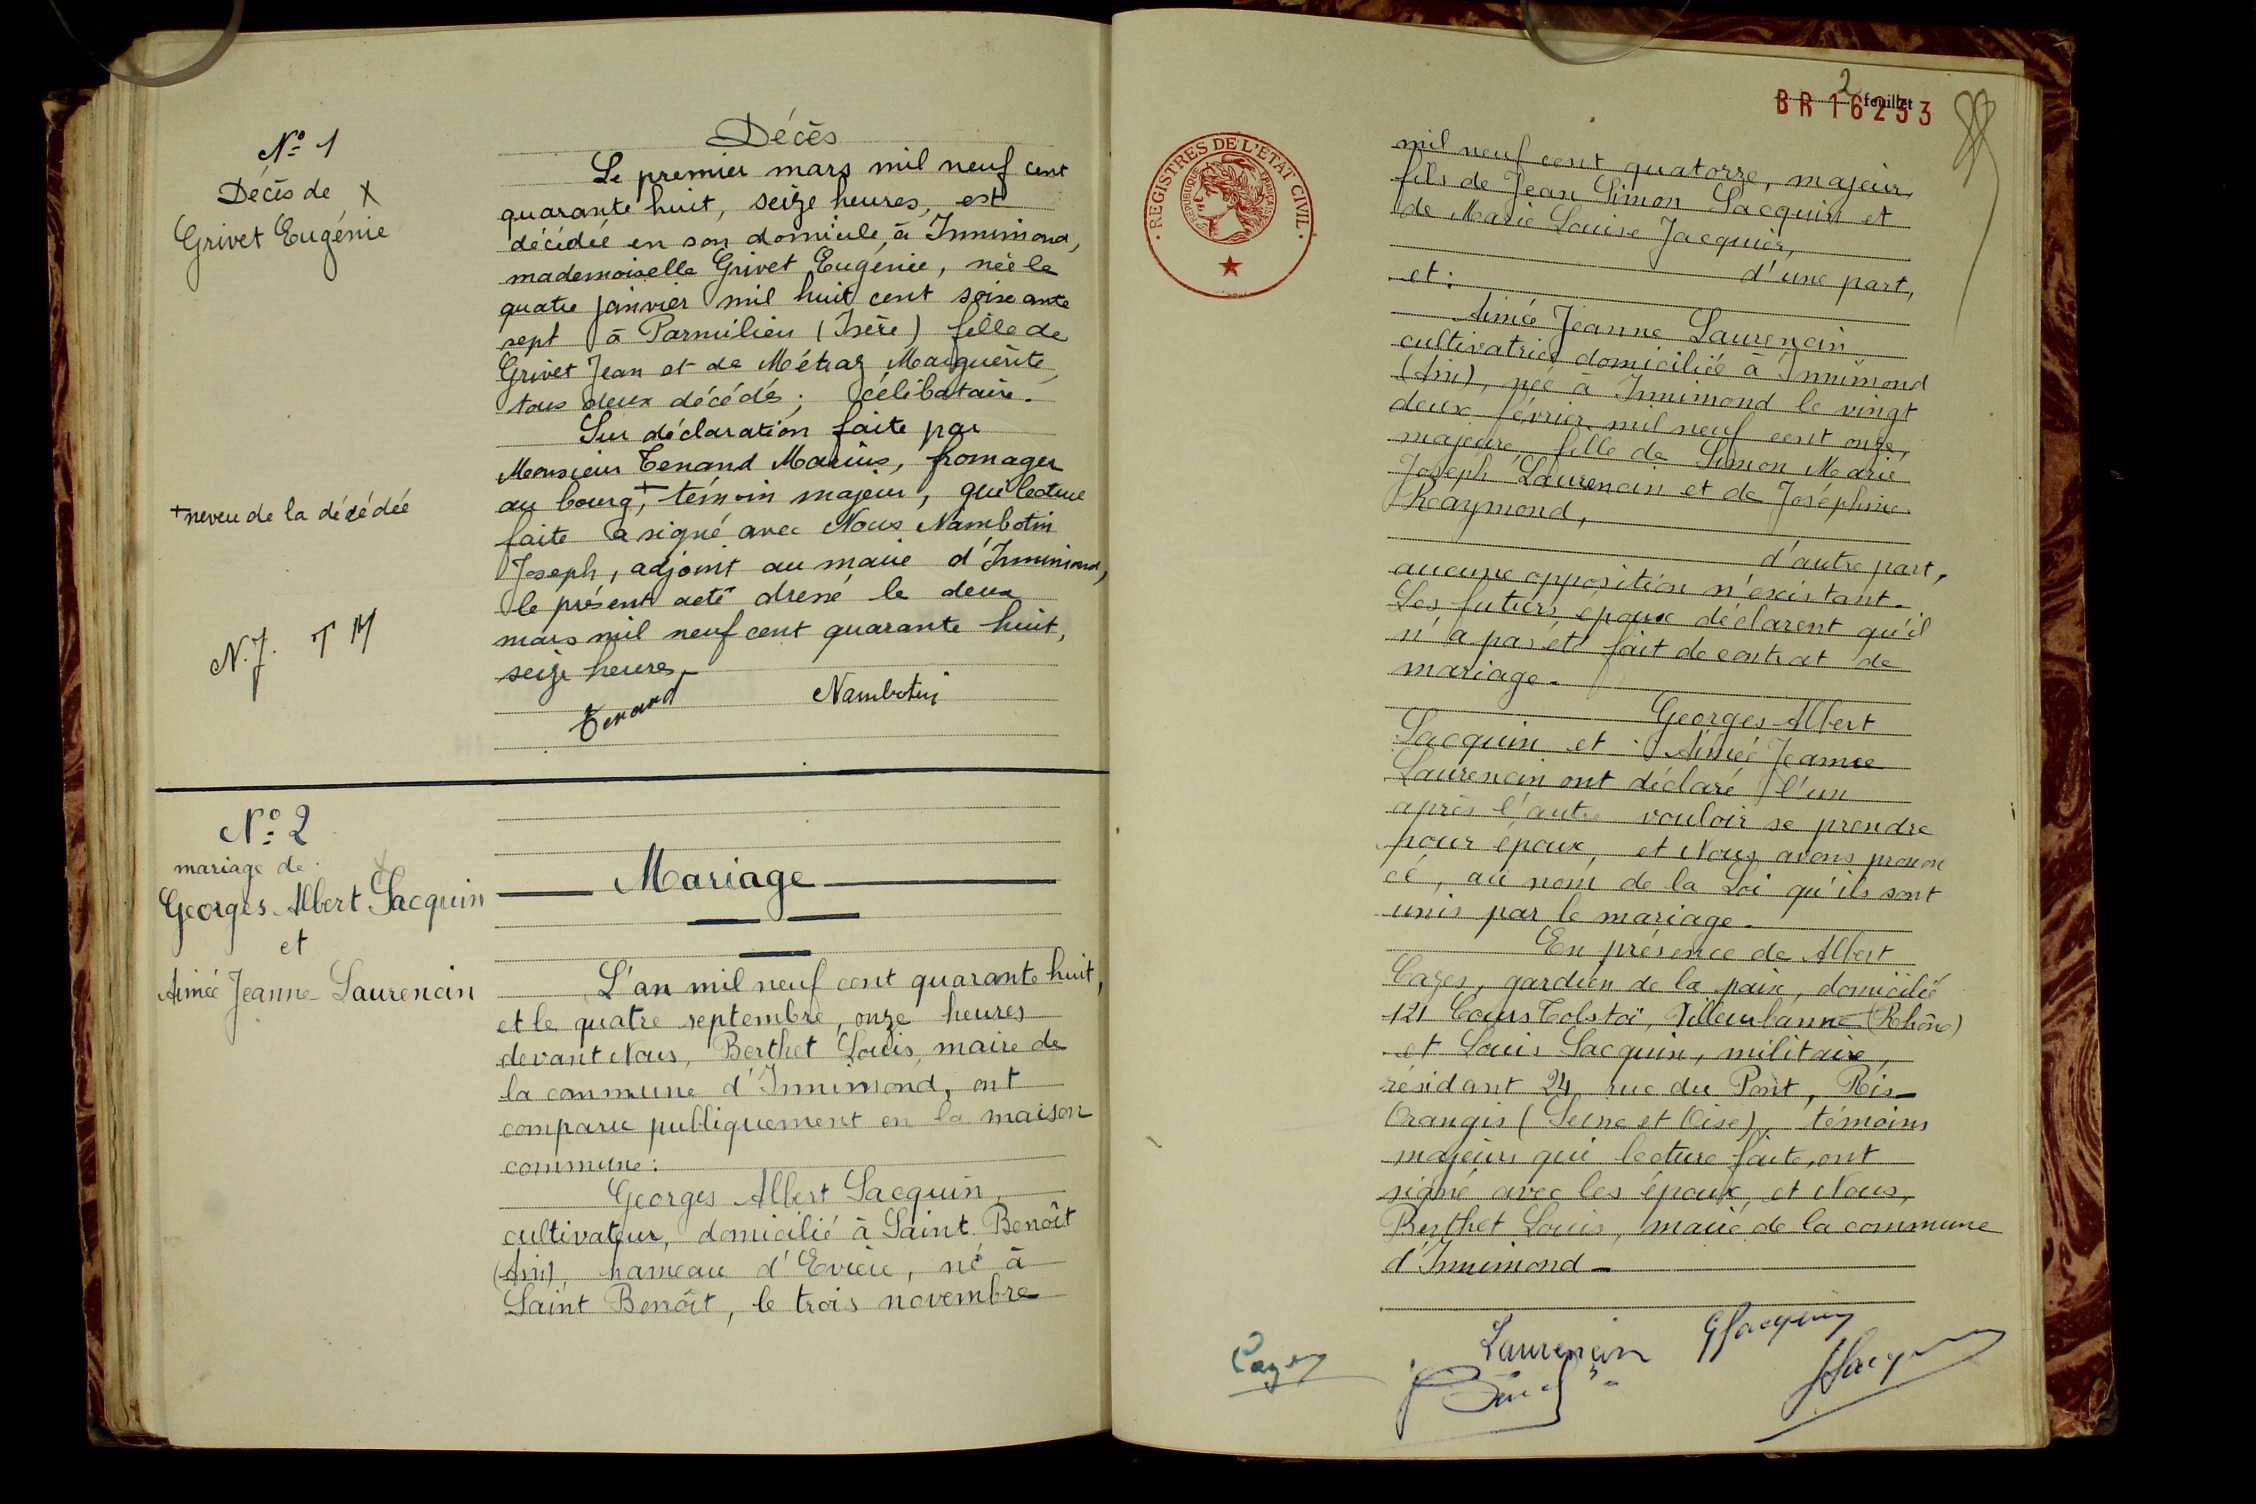 N° 1
Décès de X
Grivet Eugénie
+ neveu de la décédée
N.J. T M
Décès
Le premier mars mil neuf cent
quarante huit, seize heures, est
décédée en son domicile, à Innimond,
mademoiselle Grivet Eugénie, née le
quatre janvier mil huit cent soixante
sept à Parmilieu (Isère) fille de
Grivet Jean et de Métraz Marguerite,
tous deux décédés; célibataire.
Sur déclaration faite par
Monsieur Tenand Marius, fromager
au bourg,+ témoin majeur, qui lecture
faite a signé avec Nous Nambotin
Joseph, adjoint au maire d'Innimond,
le présent acte dressé le deux
mars mil neuf cent quarante huit,
seize heures
Tenand Nambotin
N° 2
mariage de
Georges Albert Sacquin
et
Aimée Jeanne Laurencin
Mariage
L'an mil neuf cent quarante huit,
et le quatre septembre, onze heures
devant Nous, Berthet Louis, maire de
la commune d'Innimond, ont
comparu publiquement en la maison
commune:
Georges Albert Sacquin,
cultivateur, domicilié à Saint Benoît
(Ain), hameau d'Evieu, né à
Saint Benoît, le trois novembre
2 feuillet
BR 16253
REGISTRES DE L'ETAT CIVIL
REPUBLIQUE FRANÇAISE
mil neuf cent quatorze, majeur,
fils de Jean Simon Sacquin et
de Marie Louise Jacquier,
d'une part,
et:
Aimée Jeanne Laurencin
cultivatrice domiciliée à Innimond
(Ain), née à Innimond le vingt
deux février mil neuf cent onze,
majeure, fille de Simon Marie
Joseph Laurencin et de Joséphine
Raymond,
d'autre part,
aucune opposition n'existant.
Les futurs époux déclarent qu'il
n'a pas été fait de contrat de
mariage.
Georges Albert
Sacquin et Aimée Jeanne
Laurencin ont déclaré l'un
après l'autre vouloir se prendre
pour époux, et Nous avons pronon
cé, au nom de la Loi qu'ils sont
unis par le mariage.
En présence de Albert
Cazes, gardien de la paix, domicilié
121 Cours Tolstoï, Villeurbanne (Rhône)
et Louis Sacquin, militaire,
résidant 24 rue du Pont, Ris-
Orangis (Seine et Oise), témoins
majeurs qui lecture faite, ont
signé avec les époux et Nous,
Berthet Louis, maire de la commune
d'Innimond
Laurencin GSacquin